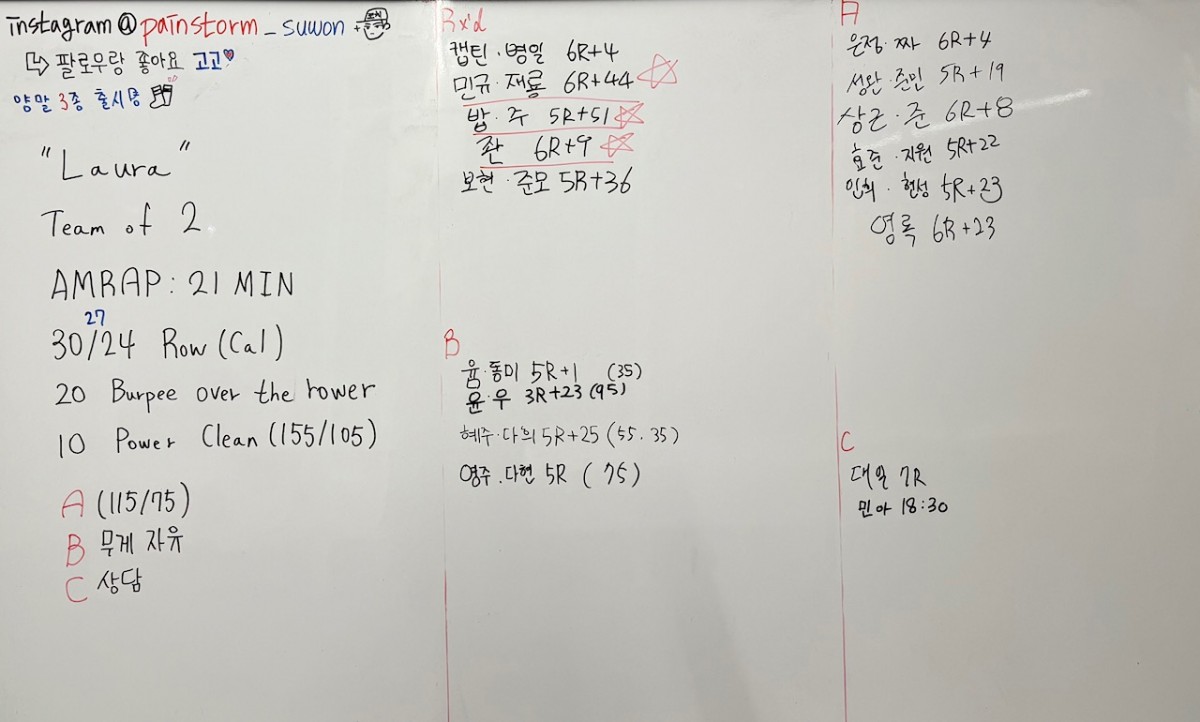 instagram @painstorm_suwon
팔로우랑 좋아요 고고
양말 3종 출시중
"Laura"
Team of 2
AMRAP: 21 MIN
27
30/24 Row (Cal)
20 Burpee over the rower
10 Power Clean (155/105)
A (115/75)
B 무게 자유
C 상담
Rx'd
캡틴·병일 6R+4
민규·재룡 6R+44
밥·주 5R+51
좐 6R+9
보현·준모 5R+36
B
윰·동미 5R+1 (35)
윤·우 3R+23 (95)
혜주·다희 5R+25 (55.35)
영주.다현 5R (75)
A
은정·짜 6R+4
성완·준민 5R+19
상근·준 6R+8
효준·지원 5R+22
인희·현성 5R+23
영록 6R+23
C
대일 7R
민아 18:30